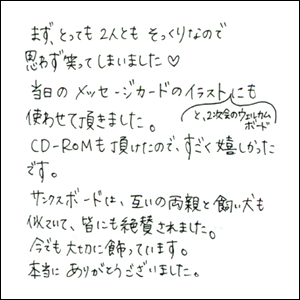 まず、とっても2人とも そっくりなので
思わず笑ってしまいました♡
当日の メッセージカードの イラストにも
と、2次会のウェルカムボード
使わせて頂きました。
CD-ROMも頂けたので、すごく嬉しかった
です。
サンクスボードは、互いの両親と飼い犬も
似ていて、皆にも絶賛されました。
今でも大切に飾っています。
本当に ありがとうございました。